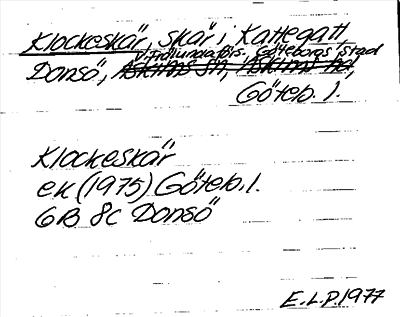 Klockeskär, skär i Kattegatt
V. Frölunda förs. Göteborgs stad
Donsö, Askims sn, Askims hd,
Göteb. l.
Klockeskär
ek (1975) Göteb. l.
6B 8c Donsö
E.L.P. 1977